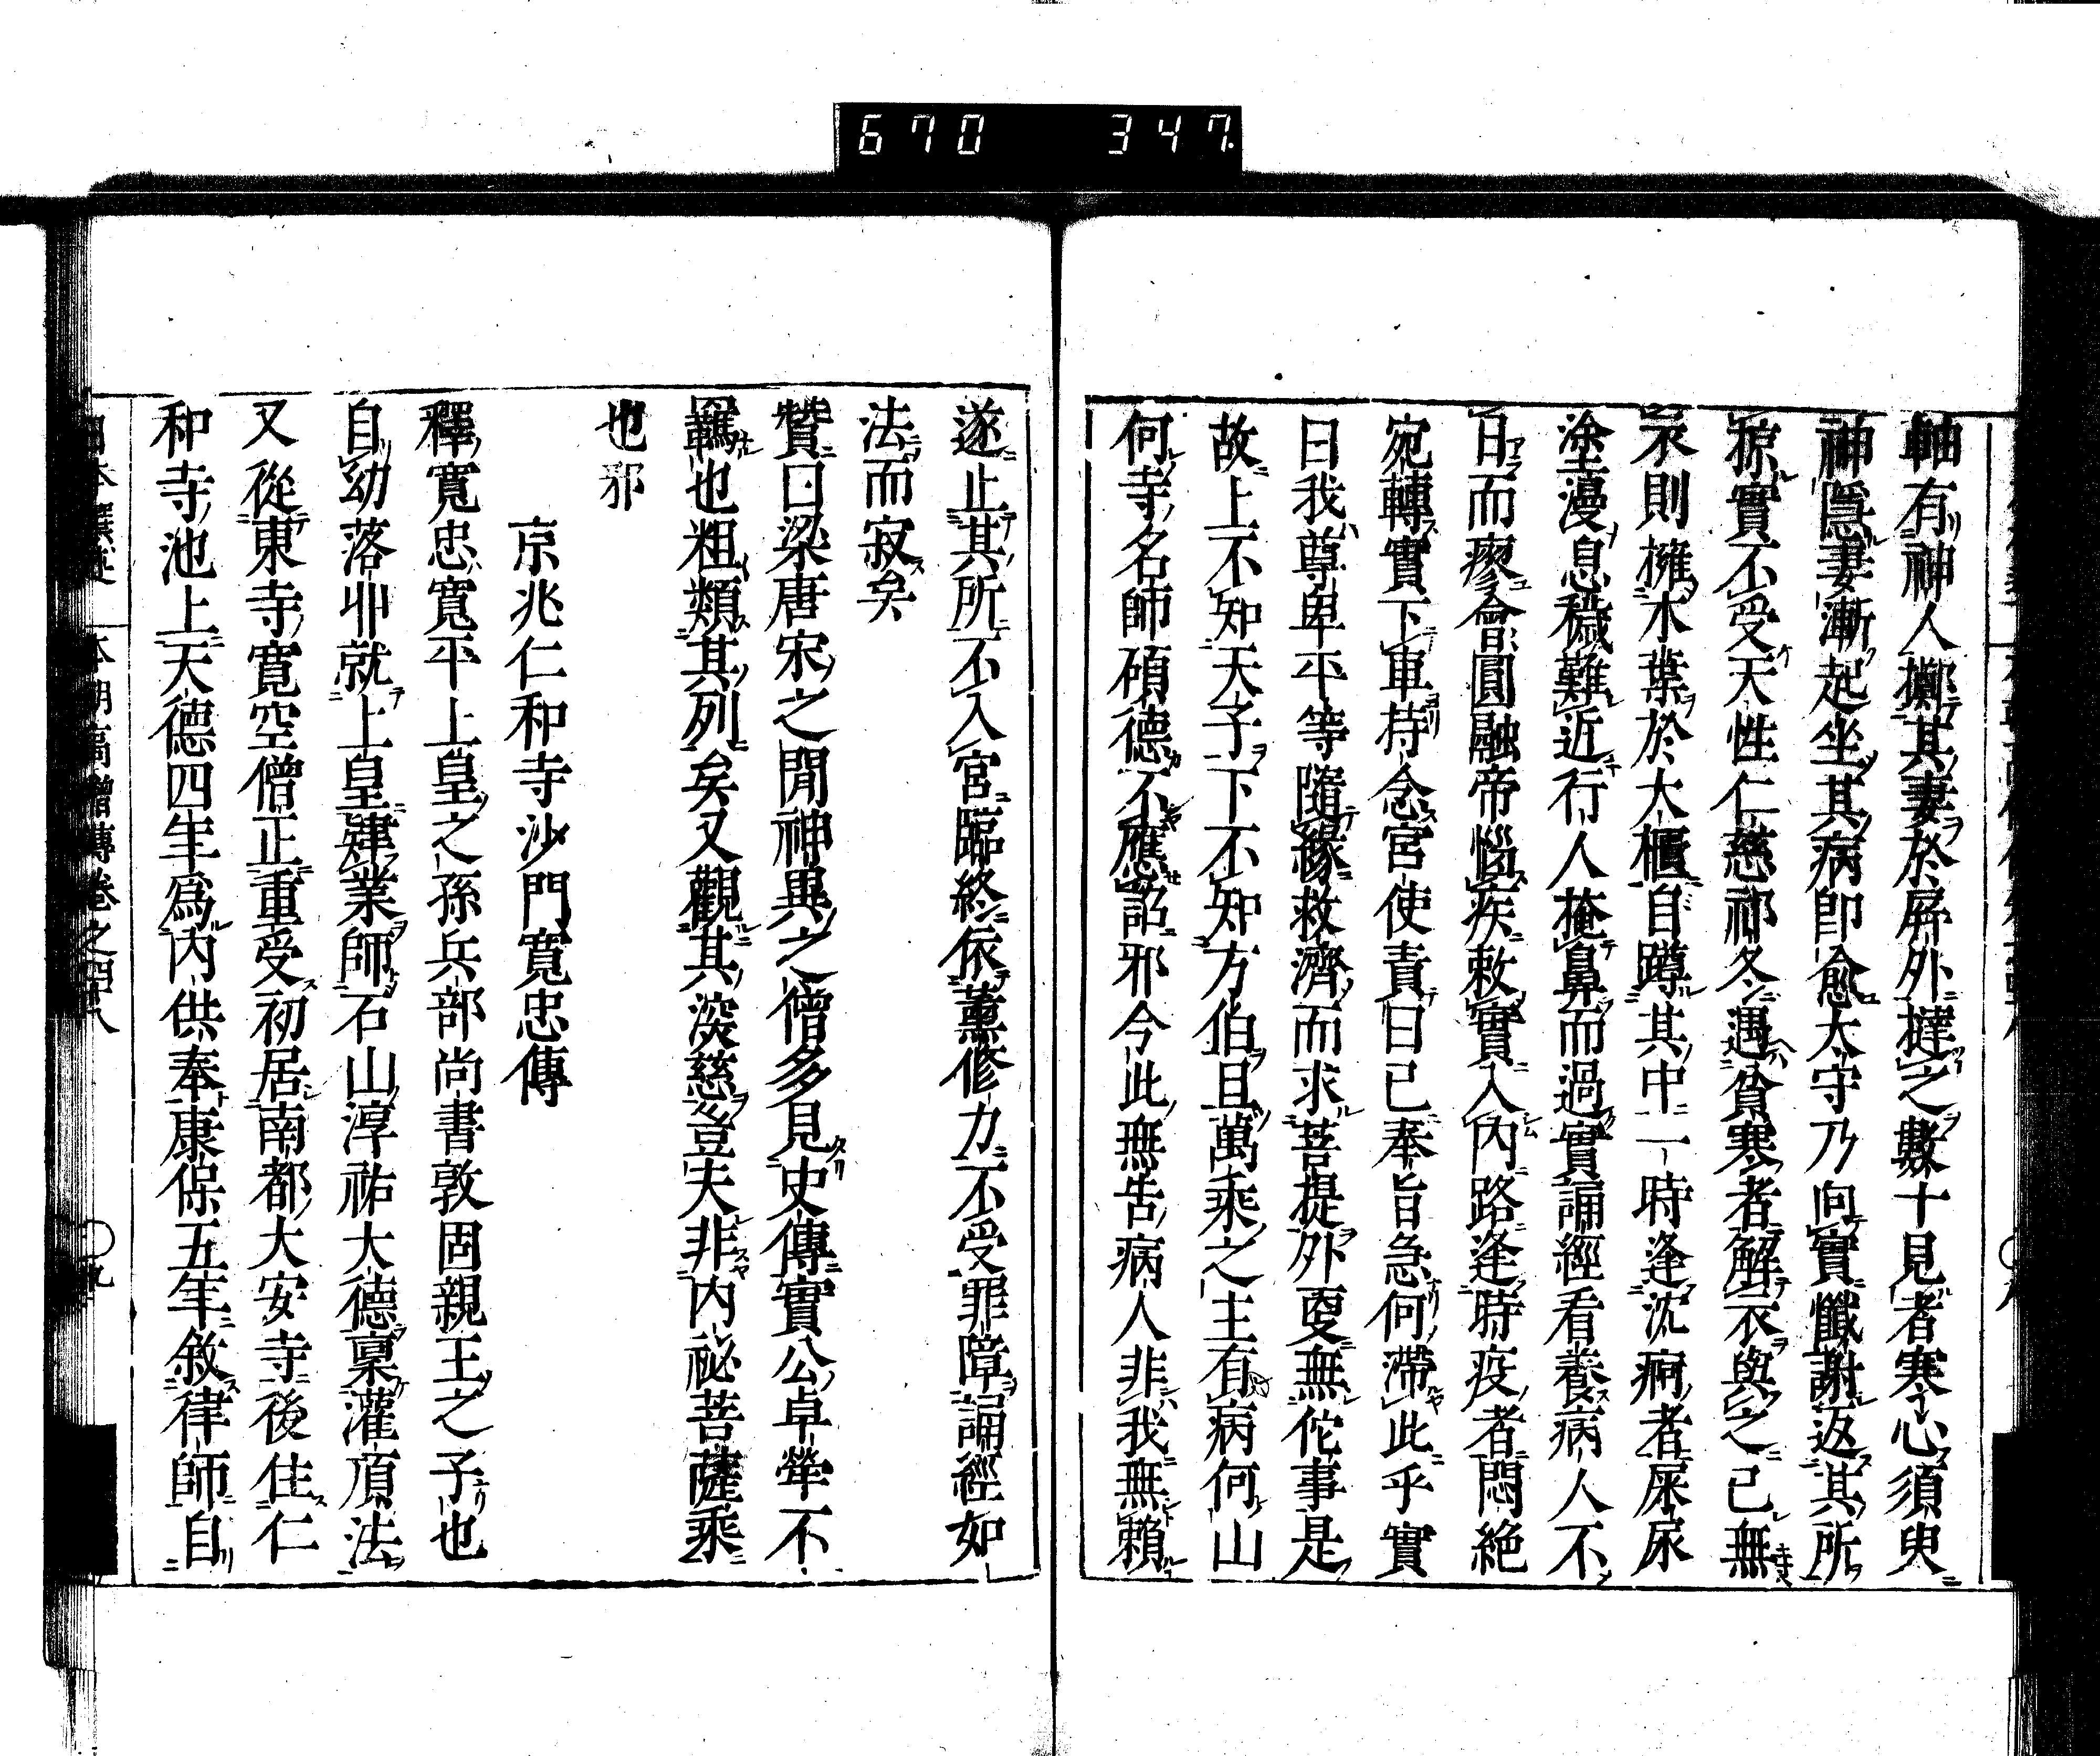 670 347
軸有神人擲其妻於屏外撻之數十見者寒心須臾
神隱妻漸起坐其病卽愈大守乃向實懺謝返其所
掠實不受天性仁慈祁冬遇貧寒者解衣與之已無
衣則擁木葉於大櫃自蹲其中一時逢沈痾者屎尿
塗漫息穢難近行人掩鼻而過實誦經看養病人不
日而瘳會圓融帝惱疾敕實入內路逢時疫者悶絕
宛轉實下車持念宮使責曰已奉旨急何滯此乎實
曰我尊卑平等隨緣救濟而求菩提外更無佗事是
故上不知天子下不知方伯且萬乘之主有病何山
何寺名師碩德不應詔邪今此無吿病人非我無賴
遂止其所不入宮臨終依薰修力不受罪障誦經如
法而寂矣
贊曰梁唐宋之閒神異之僧多見史傳實公卓犖不
羈也粗類其列矣又觀其深慈豈夫非內祕菩薩乘
也邪
京兆仁和寺沙門寬忠傳
釋寬忠寬平上皇之孫兵部尚書敦固親王之子也
自幼落丱就上皇肄業師石山淳祐大德稟灌頂法
又從東寺寬空僧正重受初居南都大安寺後住仁
和寺池上天德四年爲內供奉康保五年敘律師自
本朝高僧傳卷之四十八
〇九